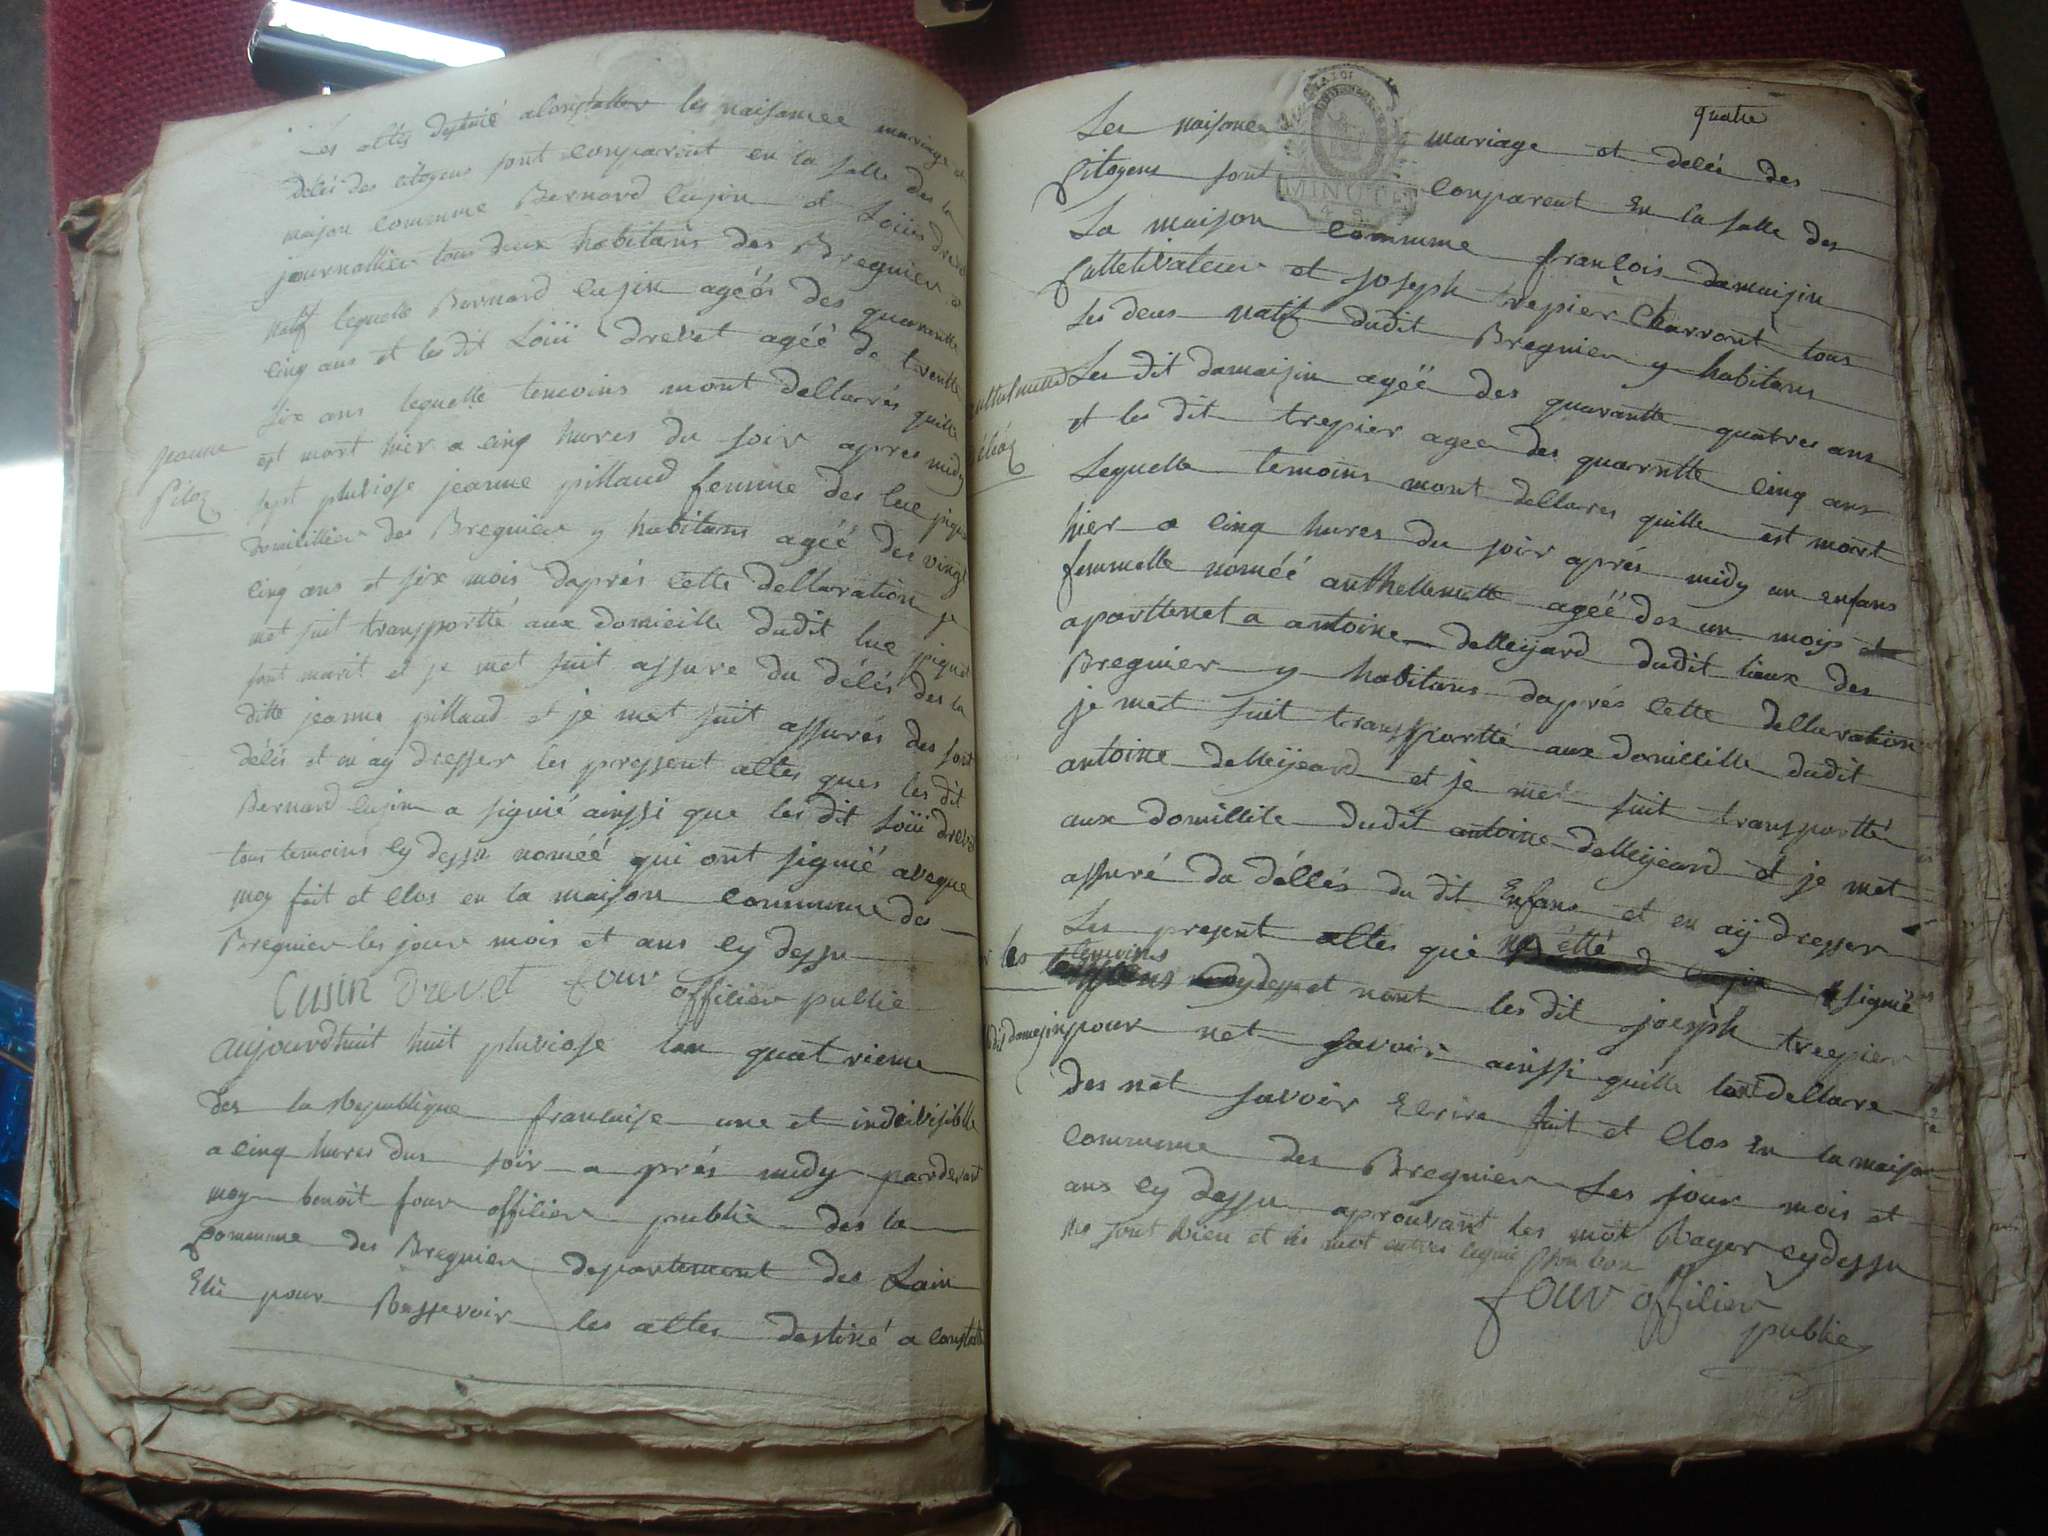 Les altes destiné a Constatter les naisance mariage et
délés des Citoyens sont Conparüt en la salle des la
maison Commune Bernard Cusin et Loüis drevet
journallier tous deux habitans des Bregnier et
natif lequelle Bernard Cusin agéés des quarantte
Cinq ans et les dit Loüi drevet agéé de trentte
six ans lequelle temoins mont dellarés quille
est mort hier a Cinq hures du soir apres midy
sept pluviose jeanne pillaud femme des luc piquet
domicillier des Bregnier y habitans agéé des vingt
Cinq ans et six mois daprés Cette dellaration je
met suit transportté aux domicille dudit luc piquet
sont marit et je met suit assure du délés des la
ditte jeanne pillaud et je met suit assurés des sont
délés et en ay dresser les pressent altes ques les dit
Bernard Cusin a signié ainssi que les dit Loüi drevet
tous temoins Cy dessu noméé qui ont signié aveque
moy fait et Clos en la maison Commune des
Bregnier les jour mois et ans Cy dessu
Cusin Drevet four offilier public
jeanne
aujourdhuit huit pluviose lan quatrieme
des la Republique francaise une et indeivisiblle
a Cinq hures dus soir a prés midy pardevant
moy benoit four offilier public des la
Commune des Bregnier departement des Lain
Elü pour Ressevoir les altes destiné a Constatter
quatre
Les naisance mariage et delés des
Citoyens sont Conparent en la salle des
MINUTE
La maison Commune françois damaisin
Culletivateur et joseph trepier Charront tous
Les deus natif dudit Bregnier y habitans
Les dit damaisin agéë des quarantte quatres ans
et les dit trepier agee des quarntte Cinq ans
Lequelle temoins mont dellares quille est mort
hier a Cinq hures du soir aprés midy un enfans
femmelle noméé anthellemette agéé des un mois et
aparttenet a antoine delleyard dudit lieux des
Bregnier y habitans daprés Cette dellaration
je met suit transpportté aux domillille dudit
antoine delleyeard et je met suit transportté
aux domillile dudit antoine delleyeard et je met
assuré du déllés du dit Enfans et en aÿ dresser
Les present altes que étté signié
temoins
Cydess et nont les dit joesph trepier
dit damesin pour net savoir ainssi quille lont dellare
des net savoir Ecrire fait et Clos En la maison
Commune des Bregnier Les jour mois et
ans Cy dessu aprouvant les mot Rayer Cydessu
four offilier
public